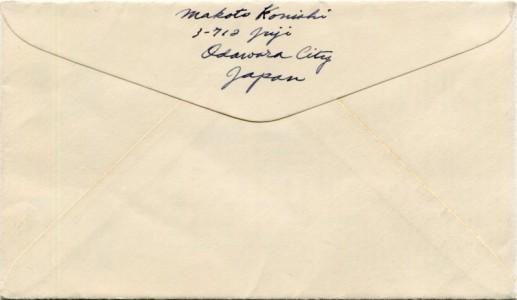 Makoto Konishi
3-712 Juji
Odawara City
Japan